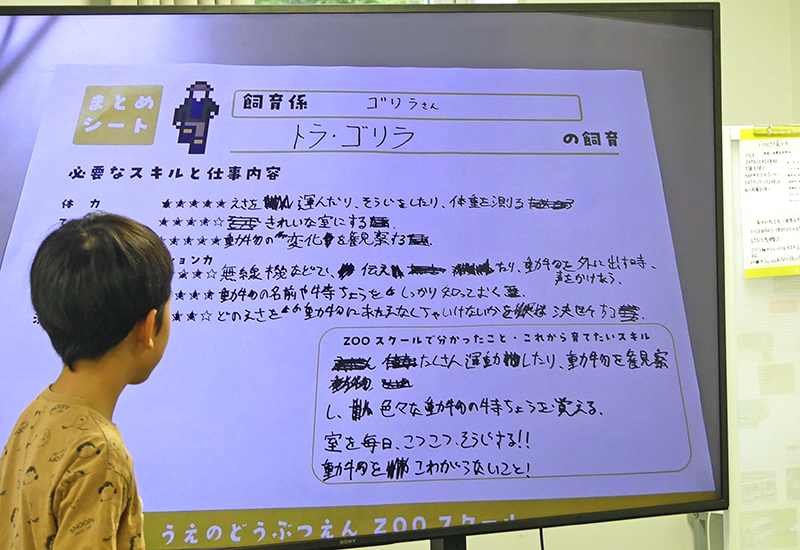 まとめ
シート
飼育係 ゴリラさん
トラ・ゴリラ の飼育
必要なスキルと仕事内容
体力 ★★★★★ えさを 運んだり、そうじをしたり、体重を測る
★★★★☆ きれいな室にする
★★★★★ 動物の"変化"を観察する
ョンカ
★★☆ 無線機などで、 伝え たり、動物を外に出す時、
声をかけあう。
★★★ 動物の名前や特ちょうを しっかり知っておく
★★☆ どのえさを 動物に
ZOOスクールで分かったこと・これから育てたいスキル
たくさん運動 したり、動物を観察
し、色々な動物の特ちょうを覚える、
室を毎日、こつこつ、そうじする!!
動物を こわがらないこと!
うえのどうぶつえん ZOOスクール
SONY
SNOOPY